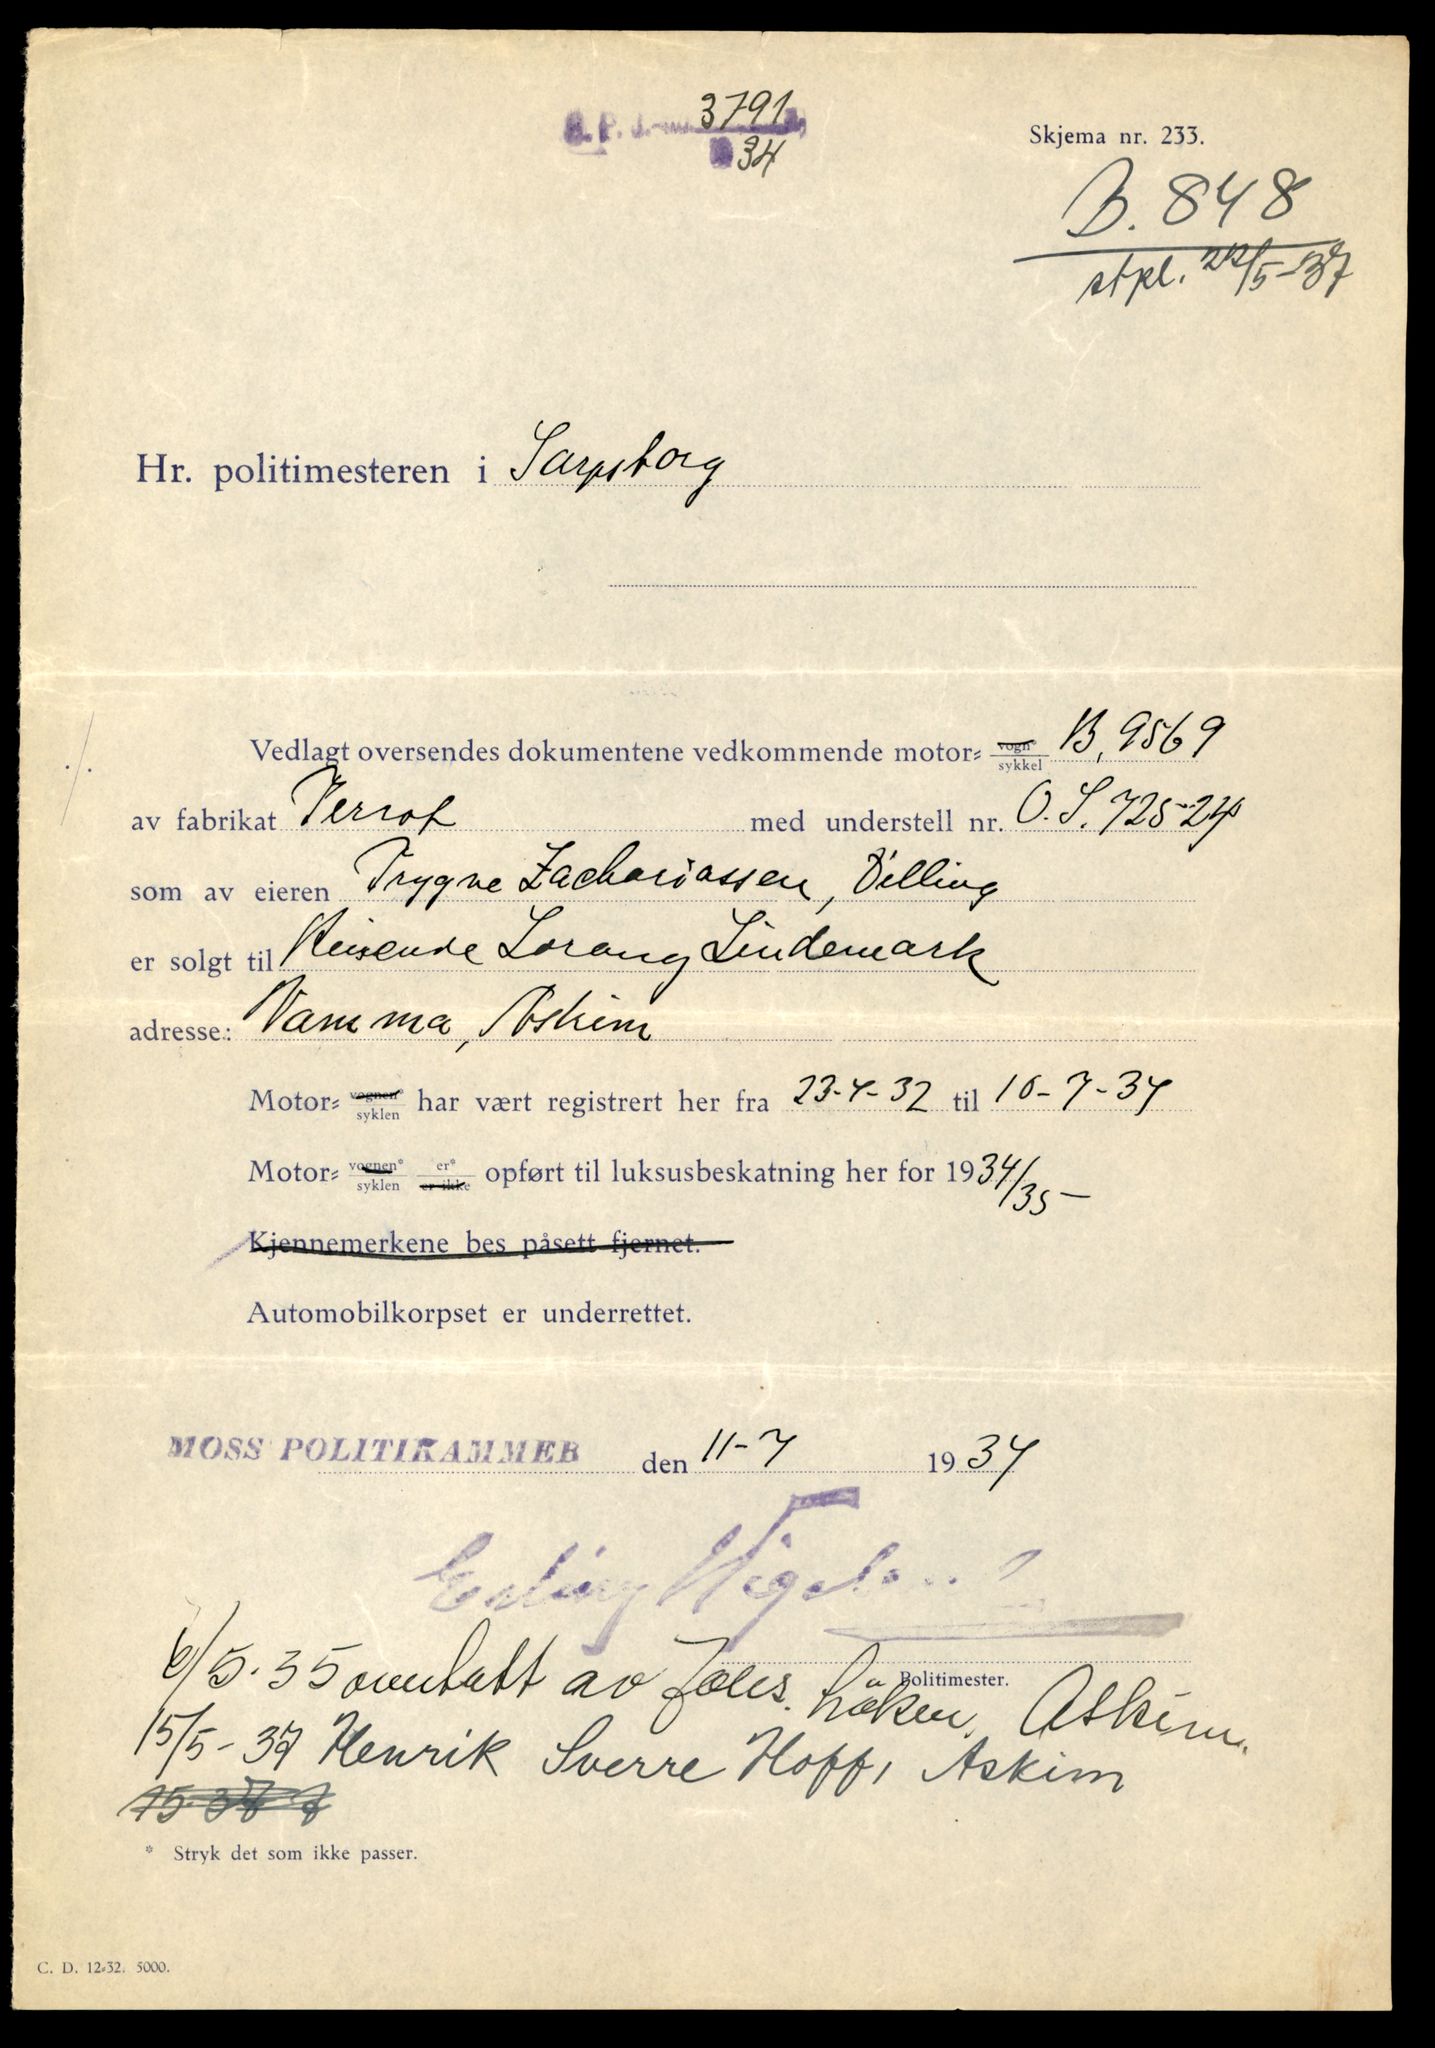 3791
34
Skjema nr. 233.
B. 848
stpl. 22/5-37
Hr. politimesteren i Sarpsborg
Vedlagt oversendes dokumentene vedkommende motor- vogn* sykkel B, 9569
av fabrikat Terrot med understell nr. O.S. 725-24
som av eieren Trygve Zachariassen, Dilling
er solgt til Reisende Lorang Lindemark
adresse: Vamma, Askim
Motor- vognen* syklen har vært registrert her fra 23-4-32 til 10-7-34
Motor- vognen* syklen er* er ikke opført til luksusbeskatning her for 1934/35-
Kjennemerkene bes påsett fjernet.
Automobilkorpset er underrettet.
MOSS POLITIKAMMER den 11-7 1934
Erling
Politimester.
6/5.35 overtatt av Johs. Askim.
15/5-37 Henrik Sverre Hoff, Askim
* Stryk det som ikke passer.
C. D. 12-32. 5000.